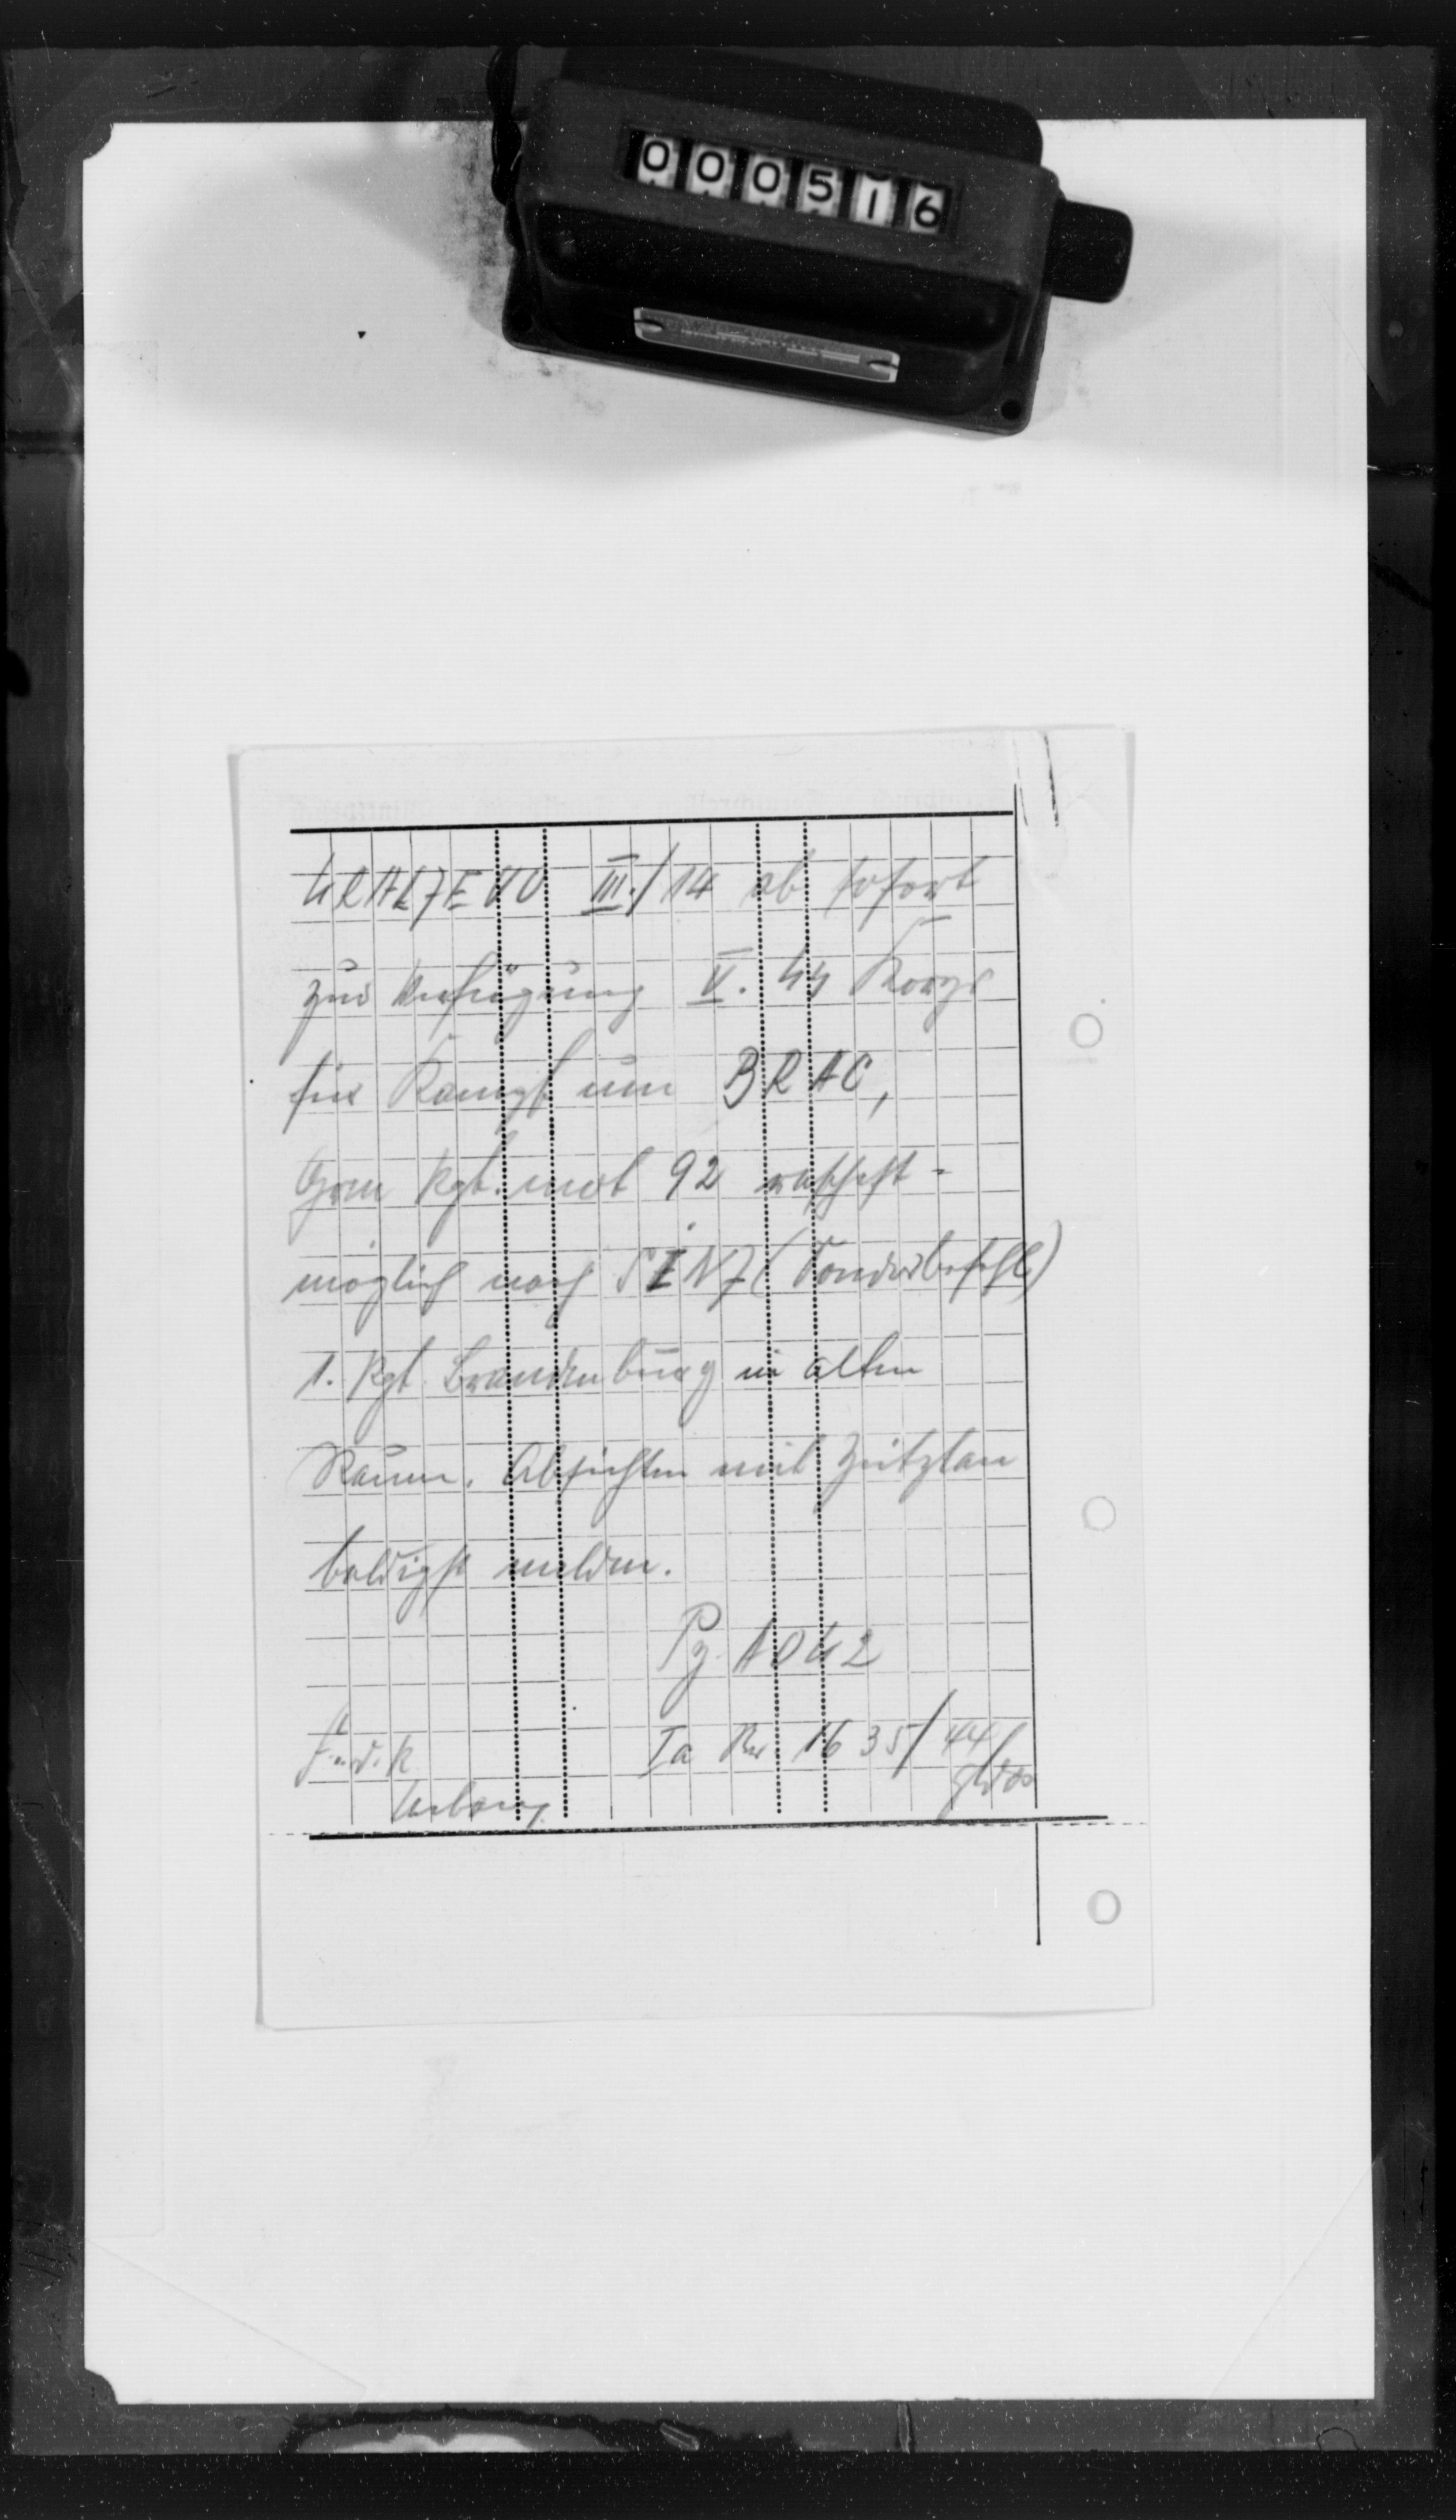 000516
KRALJEVO III./14 ab sofort
zur Verfügung V. SS Korps
für Kampf um BRAC,
Gren Rgt. mot 92 raschest-
möglich nach SINJ (Sonderbefehl)
1. Rgt. Brandenburg in alten
Raum. Absichten mit Zeitplan
baldigst melden.
Pz. AOK 2
F.d.R. Ia Nr 1635/44
gKdos